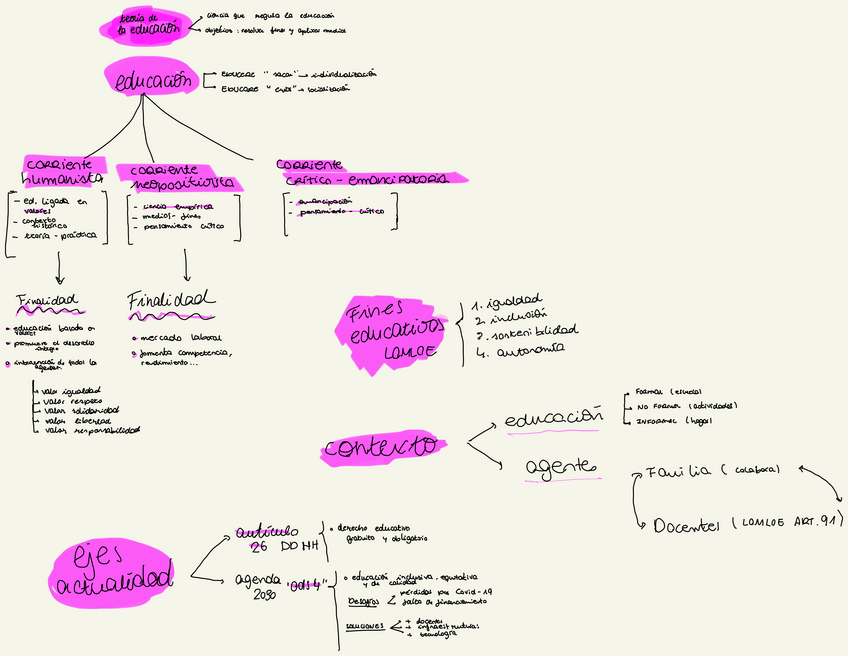 teoría de
la educación
ciencia que regula la educación
objetivos: resolver fines y aplicar medios
educación
EDUCERE "sacar" → individualización
EDUCARE "criar" → socialización
corriente
humanista
- ed. ligada en
valores
- contexto
histórico
- teoría - práctica
corriente
neopositivista
- ciencia empírica
- medios - fines
- pensamiento crítico
corriente
crítico - emancipatoria
- emancipación
- pensamiento crítico
Finalidad
educación basada en
valores
promueve el desarrollo
íntegro
integración de todos los
agentes
valor igualdad
valor respeto
valor solidaridad
valor libertad
valor responsabilidad
Finalidad
mercado laboral
fomenta competencia,
rendimiento...
Fines
educativos
LOMLOE
1. igualdad
2. inclusión
3. sostenibilidad
4. autonomía
contexto
educación
FORMAL (escuela)
NO FORMAL (actividades)
INFORMAL (hogar)
agentes
Familia (colabora)
Docentes (LOMLOE ART. 91)
ejes
actualidad
artículo
26 DDHH
derecho educativo
gratuito y obligatorio
agenda "ods 4"
2030
educación inclusiva, equitativa
y de calidad
Desafíos
pérdidas por Covid-19
falta de financiamiento
soluciones
+ docentes
+ infraestructuras
+ tecnología